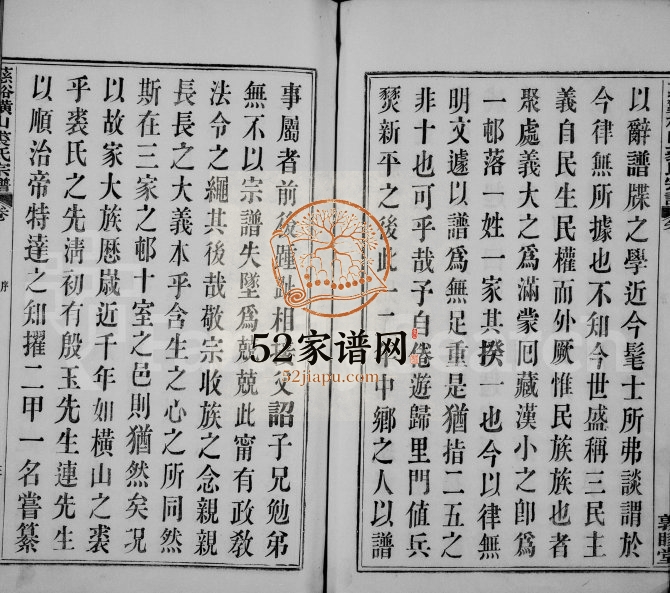 以辭譜牒之學近今髦士所弗談謂於
今律無所據也不知今世盛稱三民主
義自民生民權而外厥惟民族族也者
聚處義大之為滿蒙回藏漢小之卽為
一邨落一姓一家其揆一也今以律無
明文遽以譜為無足重是猶指二五之
非十也可乎哉予自倦遊歸里門值兵
燹新平之後此一二中鄉之人以譜
敦睦堂
事屬者前後踵趾相父詔子兄勉弟
無不以宗譜失墜為兢兢此甯有政敎
法令之繩其後哉敬宗收族之念親親
長長之大義本乎含生之心之所同然
斯在三家之邨十室之邑則猶然矣况
以故家大族歷歲近千年如橫山之裘
乎裘氏之先淸初有殷玉先生連先生
以順治帝特達之知擢二甲一名嘗纂
慈谿橫山裘氏宗譜
卷
序
52家谱网
52jiapu.com